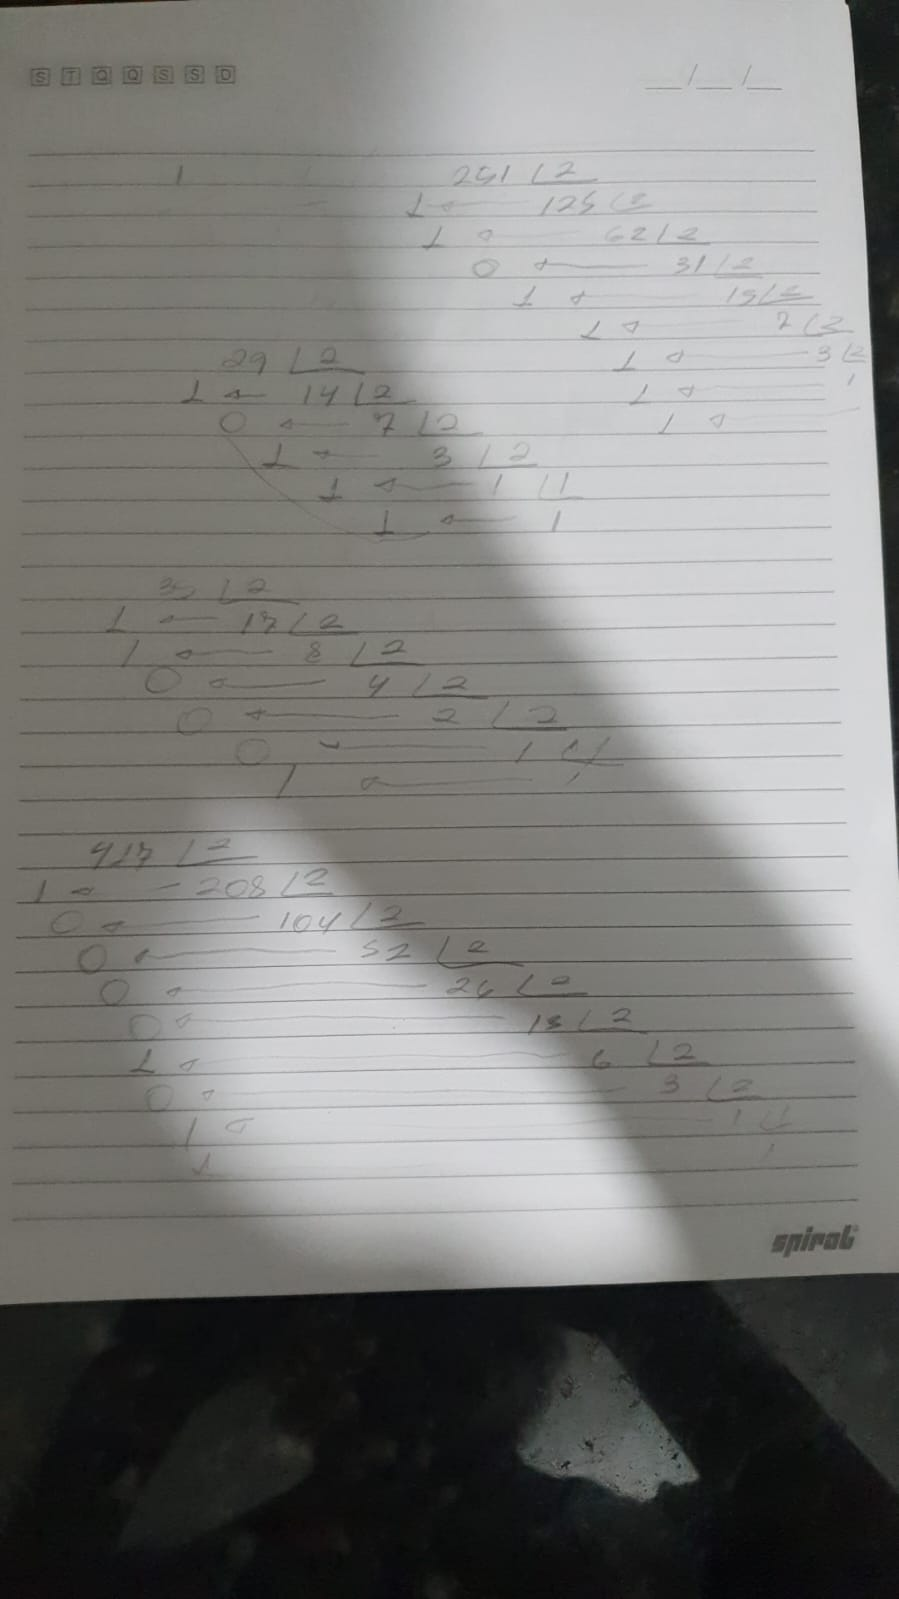 S T Q Q S S D
__/__/__
1 251 2
1 125 2
1 62 2
0 31 2
1 15 2
1 7 2
29 2 1 3 2
1 14 2 1 1
0 7 2 1
1 3 2
1 1 1
1 1
35 2
1 17 2
1 8 2
0 4 2
0 2 2
0 1 1
1 1
417 2
1 208 2
0 104 2
0 52 2
0 26 2
0 13 2
1 6 2
0 3 2
1 1 1
1 1
spiral